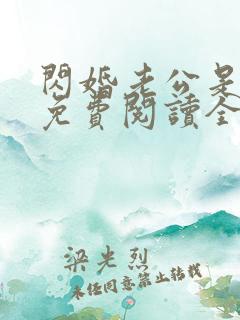 閃婚老公是
免費閱讀全
梁光烈
未經同意禁止轉載